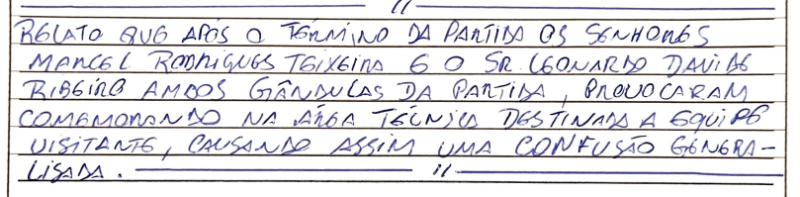 RELATO QUE APÓS O TÉRMINO DA PARTIDA OS SENHORES
MARCEL RODRIGUES TEIXEIRA E O SR. LEONARDO DAVIDE
RIBEIRO AMBOS GÂNDULAS DA PARTIDA, PROVOCARAM
COMEMORANDO NA ÁREA TÉCNICA DESTINADA A EQUIPE
VISITANTE, CAUSANDO ASSIM UMA CONFUSÃO GENERA-
LISADA.